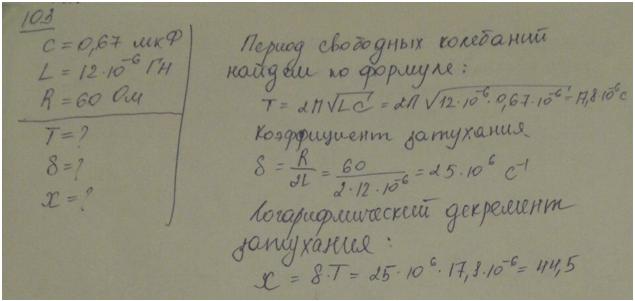 103
C = 0,67 мкФ
L = 12·10⁻⁶ Гн
R = 60 Ом
T = ?
δ = ?
x = ?
Период свободных колебаний
найдем по формуле:
T = 2π√LC = 2π√12·10⁻⁶·0,67·10⁻⁶ = 17,8·10⁻⁶ с
Коэффициент затухания
δ = R/2L = 60/2·12·10⁻⁶ = 25·10⁶ с⁻¹
Логарифмический декремент
затухания:
x = δ·T = 25·10⁶·17,8·10⁻⁶ = 44,5